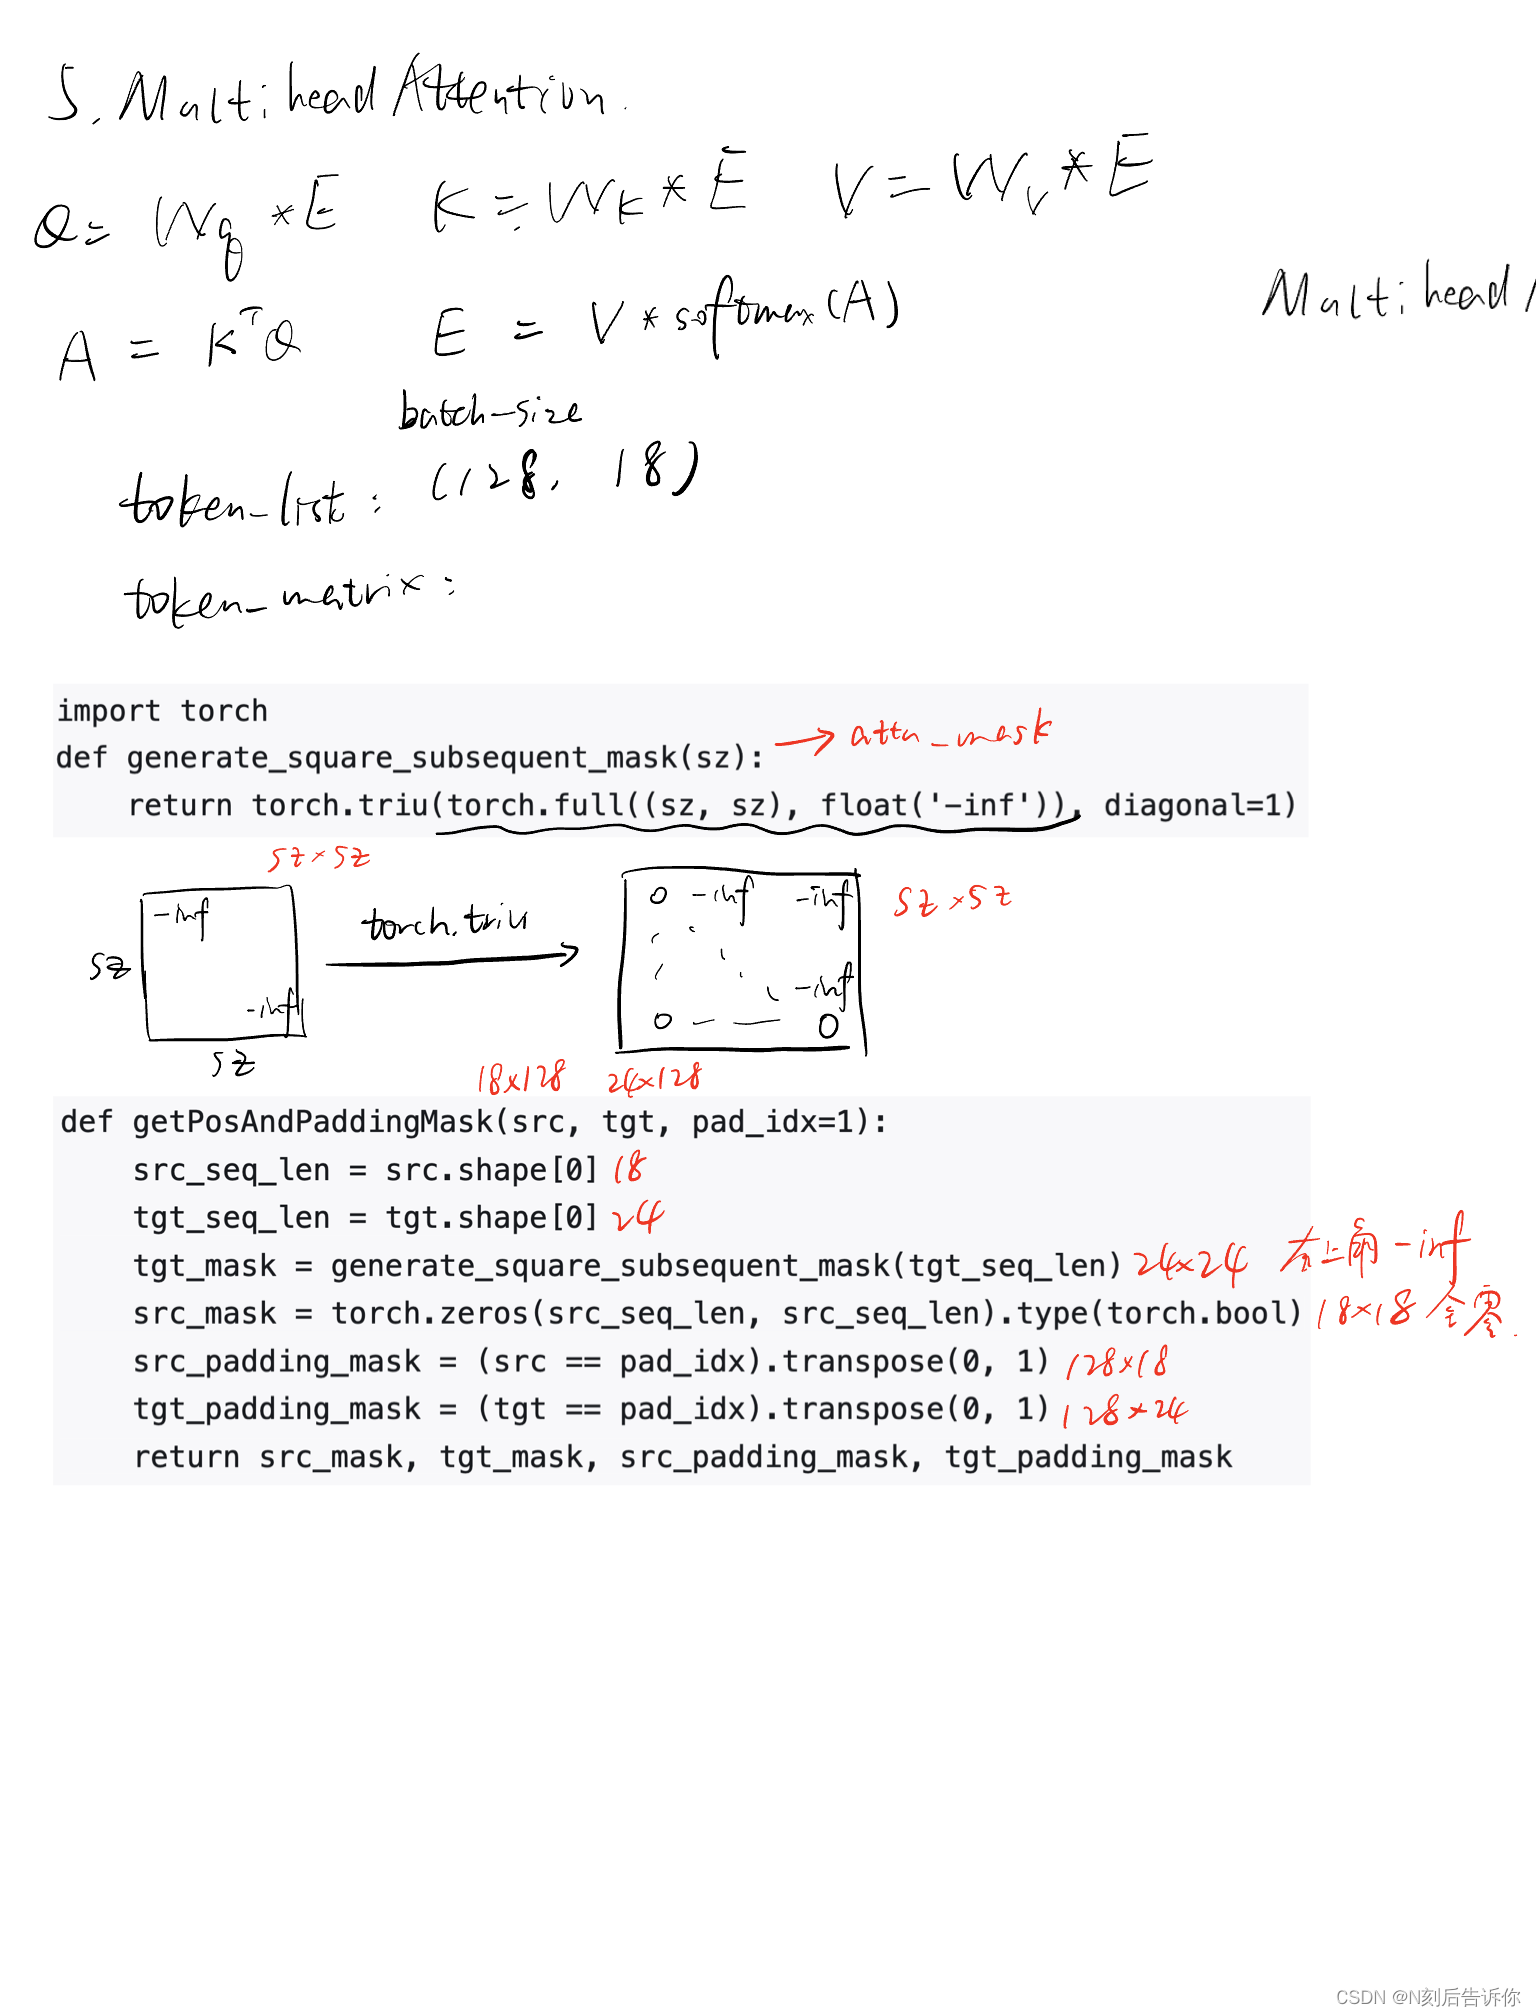 5. Multihead Attention.
Q = Wq * E K = WK * E V = Wv * E
Multihead
A = K^T Q E = V * softmax(A)
batch-size
token-list : (128, 18)
token-matrix :
import torch
def generate_square_subsequent_mask(sz): → attn_mask
return torch.triu(torch.full((sz, sz), float('-inf')), diagonal=1)
sz × sz
-inf
-inf
sz
sz
torch.triu
0 -inf -inf
-inf
0 0
sz × sz
18×128 24×128
def getPosAndPaddingMask(src, tgt, pad_idx=1):
src_seq_len = src.shape[0] 18
tgt_seq_len = tgt.shape[0] 24
tgt_mask = generate_square_subsequent_mask(tgt_seq_len) 24×24 右上角 -inf
src_mask = torch.zeros(src_seq_len, src_seq_len).type(torch.bool) 18×18 全零.
src_padding_mask = (src == pad_idx).transpose(0, 1) 128×18
tgt_padding_mask = (tgt == pad_idx).transpose(0, 1) 128×24
return src_mask, tgt_mask, src_padding_mask, tgt_padding_mask
CSDN @N刻后告诉你